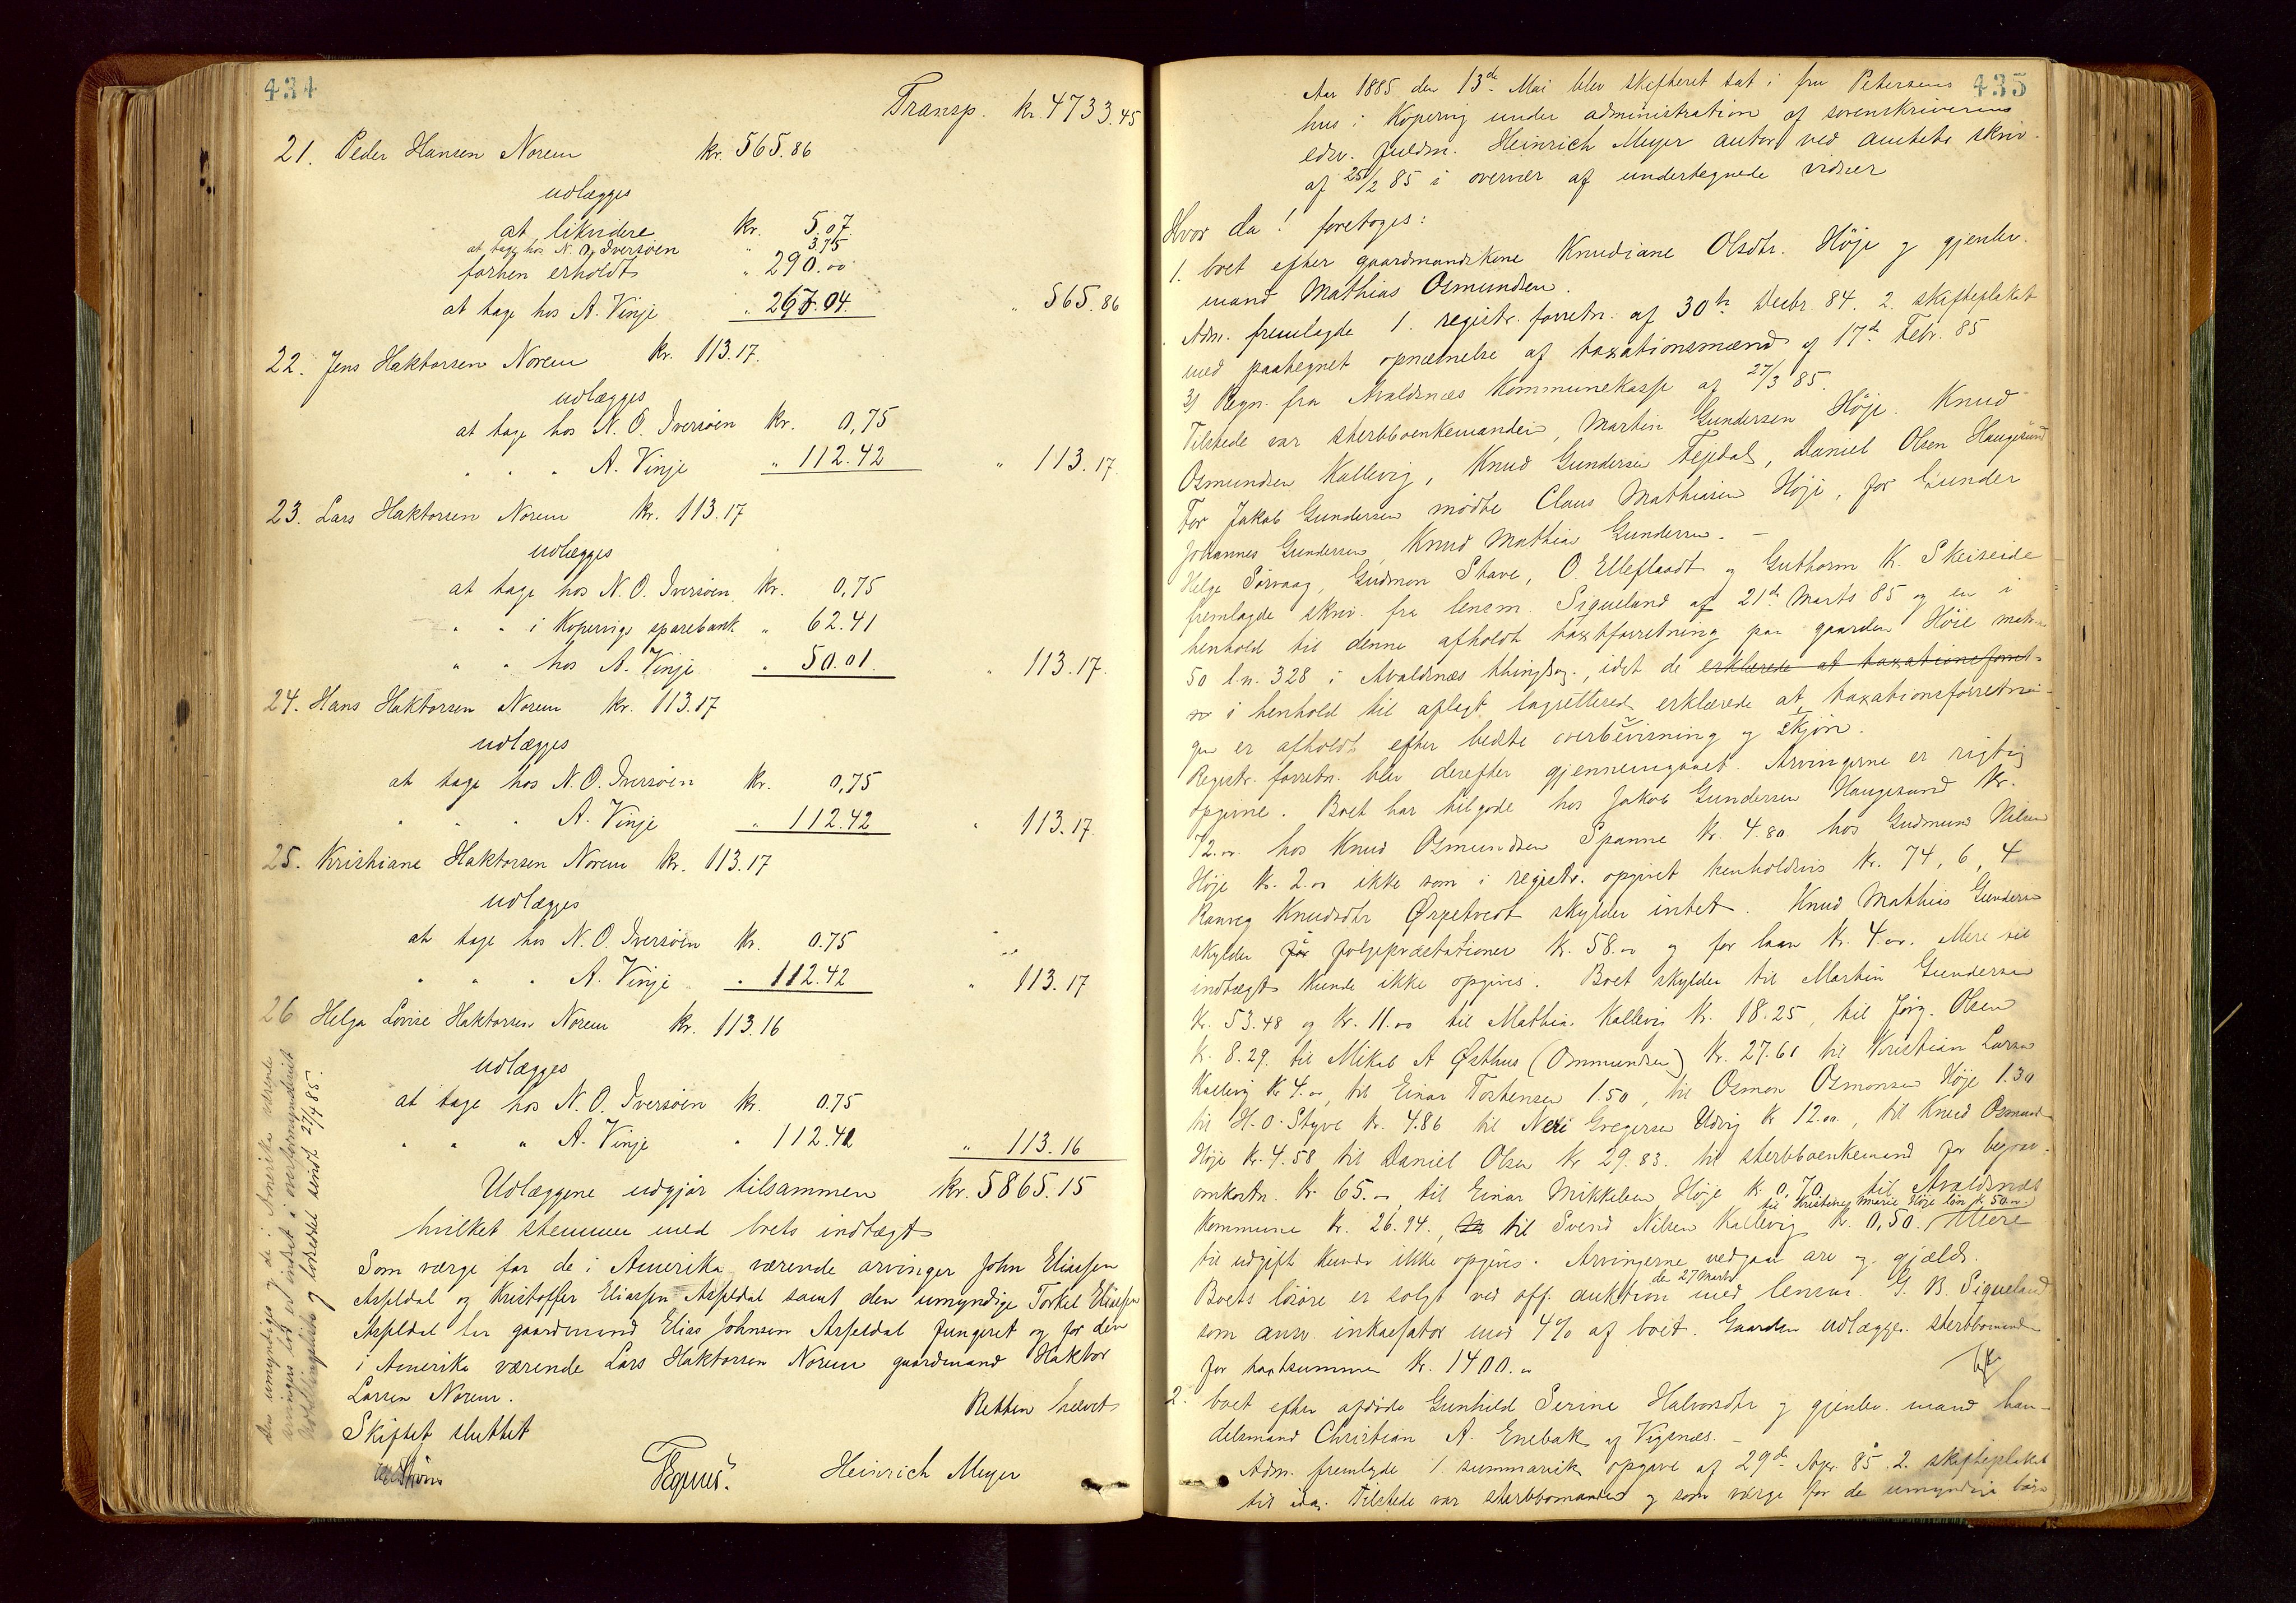 434
Transp. kr. 4733.45
21. Peder Hansen Norem kr. 565.86
udlægges
at likvidere kr. 5.07
at tage hos N. O. Iversøen " 3.75
forhen erholdt " 290.00
at tage hos A. Vinje " 267.04 " 565.86
22. Jens Haktorsen Norem kr. 113.17.
udlægges
at tage hos N. O. Iversøen kr. 0,75
" " " A. Vinje " 112.42 " 113.17.
23. Lars Haktorsen Norem kr. 113.17
udlægges
at tage hos N. O. Iversøen kr. 0,75
" " i Kopervigs sparebank " 62.41
" " hos A. Vinje " 50.01. " 113.17.
24. Hans Haktorsen Norem kr. 113.17
udlægges
at tage hos N. O. Iversøen kr. 0,75
" " " A. Vinje " 112.42 " 113.17.
25. Kristiane Haktorsen Norem kr. 113.17
udlægges
at tage hos N. O. Iversøen kr. 0.75
" " " A. Vinje " 112.42 " 113.17
26 Helga Lovise Haktorsen Norem kr. 113.16
udlægges
at tage hos N. O. Iversøen kr. 0.75
" " " A. Vinje " 112.41 " 113.16
Udlæggene udgjør tilsammen kr. 5865.15
hvilket stemmer med boets indtægt
Som værge for de i Amerika værende arvinger John Eliassen
Aspeldal og Kristoffer Eliassen Aspeldal samt den umyndige Torkel Eliassen
Aspeldal har gaardmand Elias Johnsen Aspeldal fungeret og for den
i Amerika værende Lars Haktorsen Norem gaardmand Haktor
Larsen Norem.
Retten hævet
Skiftet sluttet
Heinrich Meyer
Den umyndiges og de i Amerika værende
arvingers lod er indsat i overformynderiet
Udlodningsliste og lodseddel sendt 27/4 85.
435
Aar 1885 den 13de Mai blev skifteret sat i fru Petersens
hus i Kopervig under administration af sorenskriverens
edsv. fuldm. Heinrich Meyer autor. ved amtets skriv.
af 25/2 85 i overvær af undertegnede vidner
Hvor da! foretoges:
1. boet efter gaardmandskone Knudiane Olsdtr. Höje og gjenlev.
mand Mathias Osmundsen.
Adm. fremlagde 1. registr. forretn. af 30te Decbr. 84. 2. skifteplakat
med paategnet opnævnelse af taxationsmænd af 17de Febr. 85
3) Regn. fra Avaldsnæs Kommunekasse af 27/3 85.
Tilstede var sterbboenkemanden, Martin Gundersen Höje. Knud
Osmundsen Kallevig, Knud Gundersen, Daniel Olsen Haugesund
For Jakob Gundersen mödte Claus Mathiasen Höje, for Gunder
Johannes Gundersen, Knud Mathias Gundersen. –
Helge Sörvaag, Gudmon Stave, O. Elleflaadt og Guthorm K. Skeiseide
fremlagde skriv. fra lensm. Siqueland af 21de Marts 85 og en i
henhold til denne afholdt taxtforretning paa gaarden Höie matr.
50 l.n. 328 i Avaldsnæs thingsog., idet de erklærede at taxationsforret-
i henhold til aflagt lagretteed erklærede at taxationsforretnin-
gen er afholdt efter bedste overbevisning og skjön.
Registr. forretn. blev derefter gjennemgaaet. Arvingerne er rigtig
opgivne. Boet har tilgode hos Jakob Gundersen Haugesund kr.
72.00 hos Knud Osmundsen Spanne kr. 4.80. hos Gudmund Nilsen
Höje kr. 2.00 ikke som i registr. opgivet henholdsvis kr. 74, 6, 4
Ranveg Knudsdtr Ørpetvedt skylder intet. Knud Mathias Gundersen
skylder for fölgepræstationer kr. 58.00 og for laan kr. 4.00. Mere til
indtægt kunde ikke opgives. Boet skylder til Martin Gundersen
kr. 53.48 og kr. 11.00 til Mathias Kallevig kr. 18.25, til Jörg. Olsen
kr. 8.29. til Mikal A Østhus (Ommundsen) kr. 27.61 til Kristian Larsen
Kallevig kr 4.00, til Einar Tostensen 1.50, til Osmon Osmonsen Höje 1.30
til H. O. Styve kr. 4.86 til Neri Gregersen Udvig kr 12.00, til Knud Osmunds
Höje kr. 4.58 til Daniel Olsen kr 29.83. til sterbboenkemand for begrav.
omkostn. kr. 65.00, til Einar Mikkelsen Höje kr. 0.70 til Avaldsnæs
til Kristine Marie Höje lön kr. 50.00.
Kommune kr. 26.94., til Svend Nilsen Kallevig kr. 0,50. Mere
til udgift kunde ikke opgives. Arvingerne vedgaar arv og gjæld.
den 27 Marts
Boets lösöre er solgt ved off. auktion med lensm. G. B. Siqueland
som ansv. inkassator mod 4% af boet. Gaarden udlægges sterbbomanden
for taxtsummen kr. 1400.00
2. boet efter afdöde Gunhild Serine Halvorsdtr og gjenlev. mand han-
delsmand Christian A. Enebak af Vigsnæs. –
Adm. fremlagde 1. summarisk opgave af 29de Apr. 85. 2. skifteplakat
til idag. Tilstede var sterbbomanden og som værge for de umyndige börn